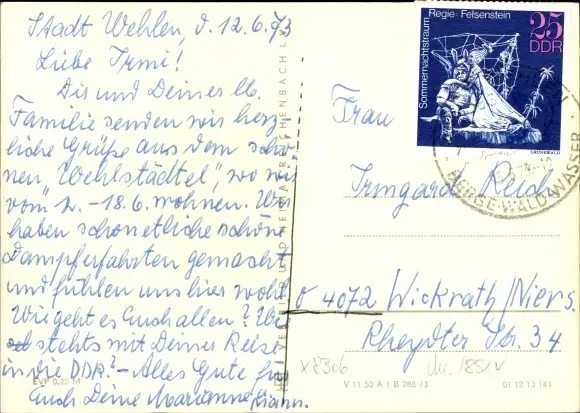 Stadt Wehlen, d. 12.6.73
Liebe Irmi!
Dir und Deiner lb.
Familie senden wir herz-
liche Grüße aus dem schö-
nen "Wehlstädtel", wo wir
vom 2. - 18.6. wohnen. Wir
haben schon etliche schöne
Dampferfahrten gemacht
und fühlen uns hier wohl.
Wie geht es Euch allen? Wie
stehts mit Deiner Reise
in die DDR? - Alles Gute für
Euch Deine Marianne
EVP 0,25 M
REICHENBACH I. V.
Regie: Felsenstein
25
DDR
Sommernachtstraum
GRÜNEWALD
BERGE-WALD-WASSER
Frau
Irmgard Reich
D 4072 Wickrath/Niers.
Rheydter Str. 34
x 8306
V 11 50 A 1 B 288/73
01 12 13 141